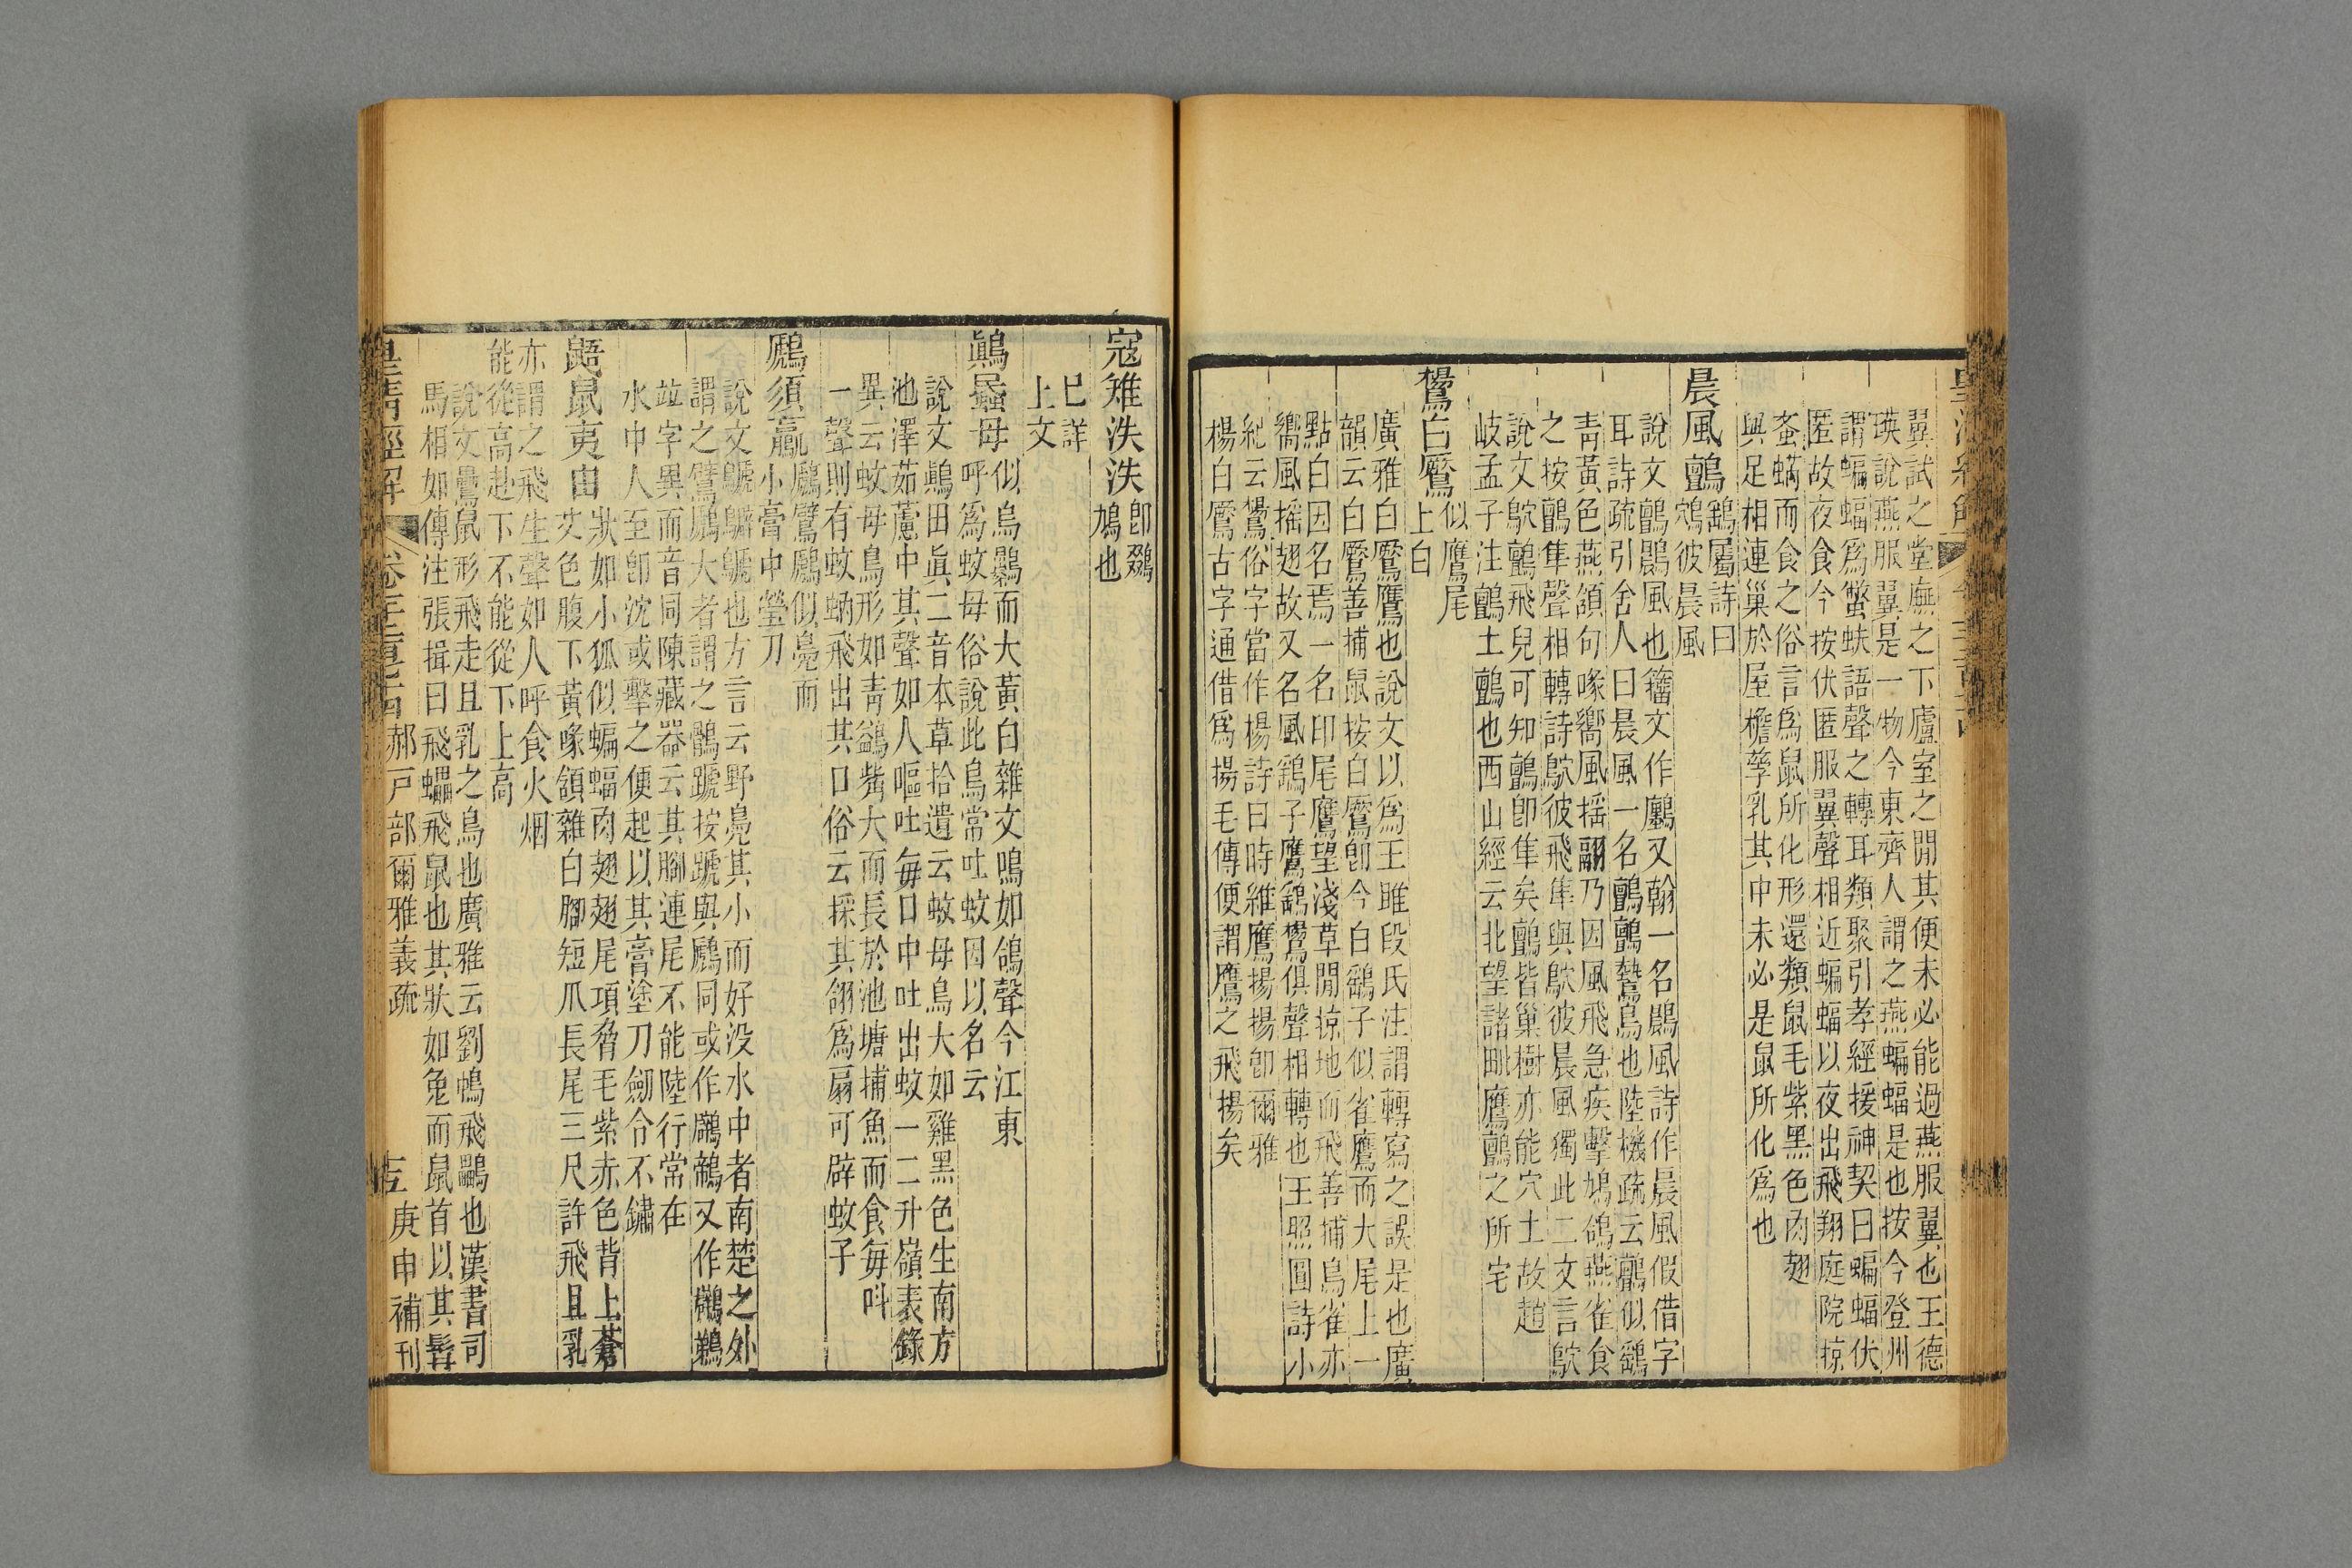 翼試之堂廡之下廬室之閒其便未必能過燕服翼也王德
瑛說燕服翼是一物今東齊人謂之燕蝙蝠是也按今登州
謂蝙蝠爲蟞蚨語聲之轉耳類聚引孝經援神契曰蝙蝠伏
匿故夜食今按伏匿服翼聲相近蝙蝠以夜出飛翔庭院掠
蚤螨而食之俗言爲鼠所化形還類鼠毛紫黑色肉翅
與足相連巢於屋檐孳乳其中未必是鼠所化爲也
晨風鸇
鷂屬詩曰
鴥彼晨風
說文鸇鷐風也籒文作𪇼又翰一名鷐風詩作晨風假借字
耳詩疏引舍人曰晨風一名鸇鸇鷙鳥也陸機疏云鸇似鷂
青黃色燕頷句喙嚮風搖翮乃因風飛急疾擊鳩鴿燕雀食
之按鸇隼聲相轉詩鴥彼飛隼與鴥彼晨風獨此二文言鴥
說文鴥鸇飛皃可知鸇卽隼矣鸇皆巢樹亦能穴土故趙
岐孟子注鸇土鸇也西山經云北望諸毗鷹鸇之所宅
鸉白鷢
似鷹尾
上白
廣雅白鷢鷹也說文以爲王雎段氏注謂轉寫之誤是也廣
韻云白鷢善捕鼠按白鷢卽今白鷂子似雀鷹而大尾上一
點白因名焉一名印尾鷹望淺草閒掠地而飛善捕鳥雀亦
嚮風搖翅故又名風鷂子鷹鷂鸉俱聲相轉也王照圓詩小
紀云鸉俗字當作楊詩曰時維鷹揚揚卽爾雅
楊白鷢古字通借爲揚毛傳便謂鷹之飛揚矣
寇雉泆泆
卽鵽
鳩也
已詳
上文
鷏蟁母
似烏鷃而大黃白雜文鳴如鴿聲今江東
呼爲蚊母俗說此鳥常吐蚊因以名云
說文鷏田眞二音本草拾遺云蚊母鳥大如雞黑色生南方
池澤茹蘆中其聲如人嘔吐每口中吐出蚊一二升嶺表錄
異云蚊母鳥形如青鷁觜大而長於池塘捕魚而食每叫
一聲則有蚊蚋飛出其口俗云採其翎爲扇可辟蚊子
鷉須鸁
鷉鷿鷉似鳧而
小膏中瑩刀
說文鷈鸊鷈也方言云野鳧其小而好没水中者南楚之外
謂之鷿鷉大者謂之鶻蹏按蹏與鷉同或作鷈鵜又作䴘鷤
竝字異而音同陳藏器云其腳連尾不能陸行常在
水中人至卽沈或擊之便起以其膏塗刀劒令不鏽
鼯鼠夷由
狀如小狐似蝙蝠肉翅翅尾項脅毛紫赤色背上蒼
艾色腹下黃喙頷雜白腳短爪長尾三尺許飛且乳
亦謂之飛生聲如人呼食火烟
能從高赴下不能從下上高
說文鸓鼠形飛走且乳之鳥也廣雅云䴅鴟飛鸓也漢書司
馬相如傳注張揖曰飛蠝飛鼠也其狀如兔而鼠首以其髥
皇清經解
郝戸部爾雅義疏
庚申補刊